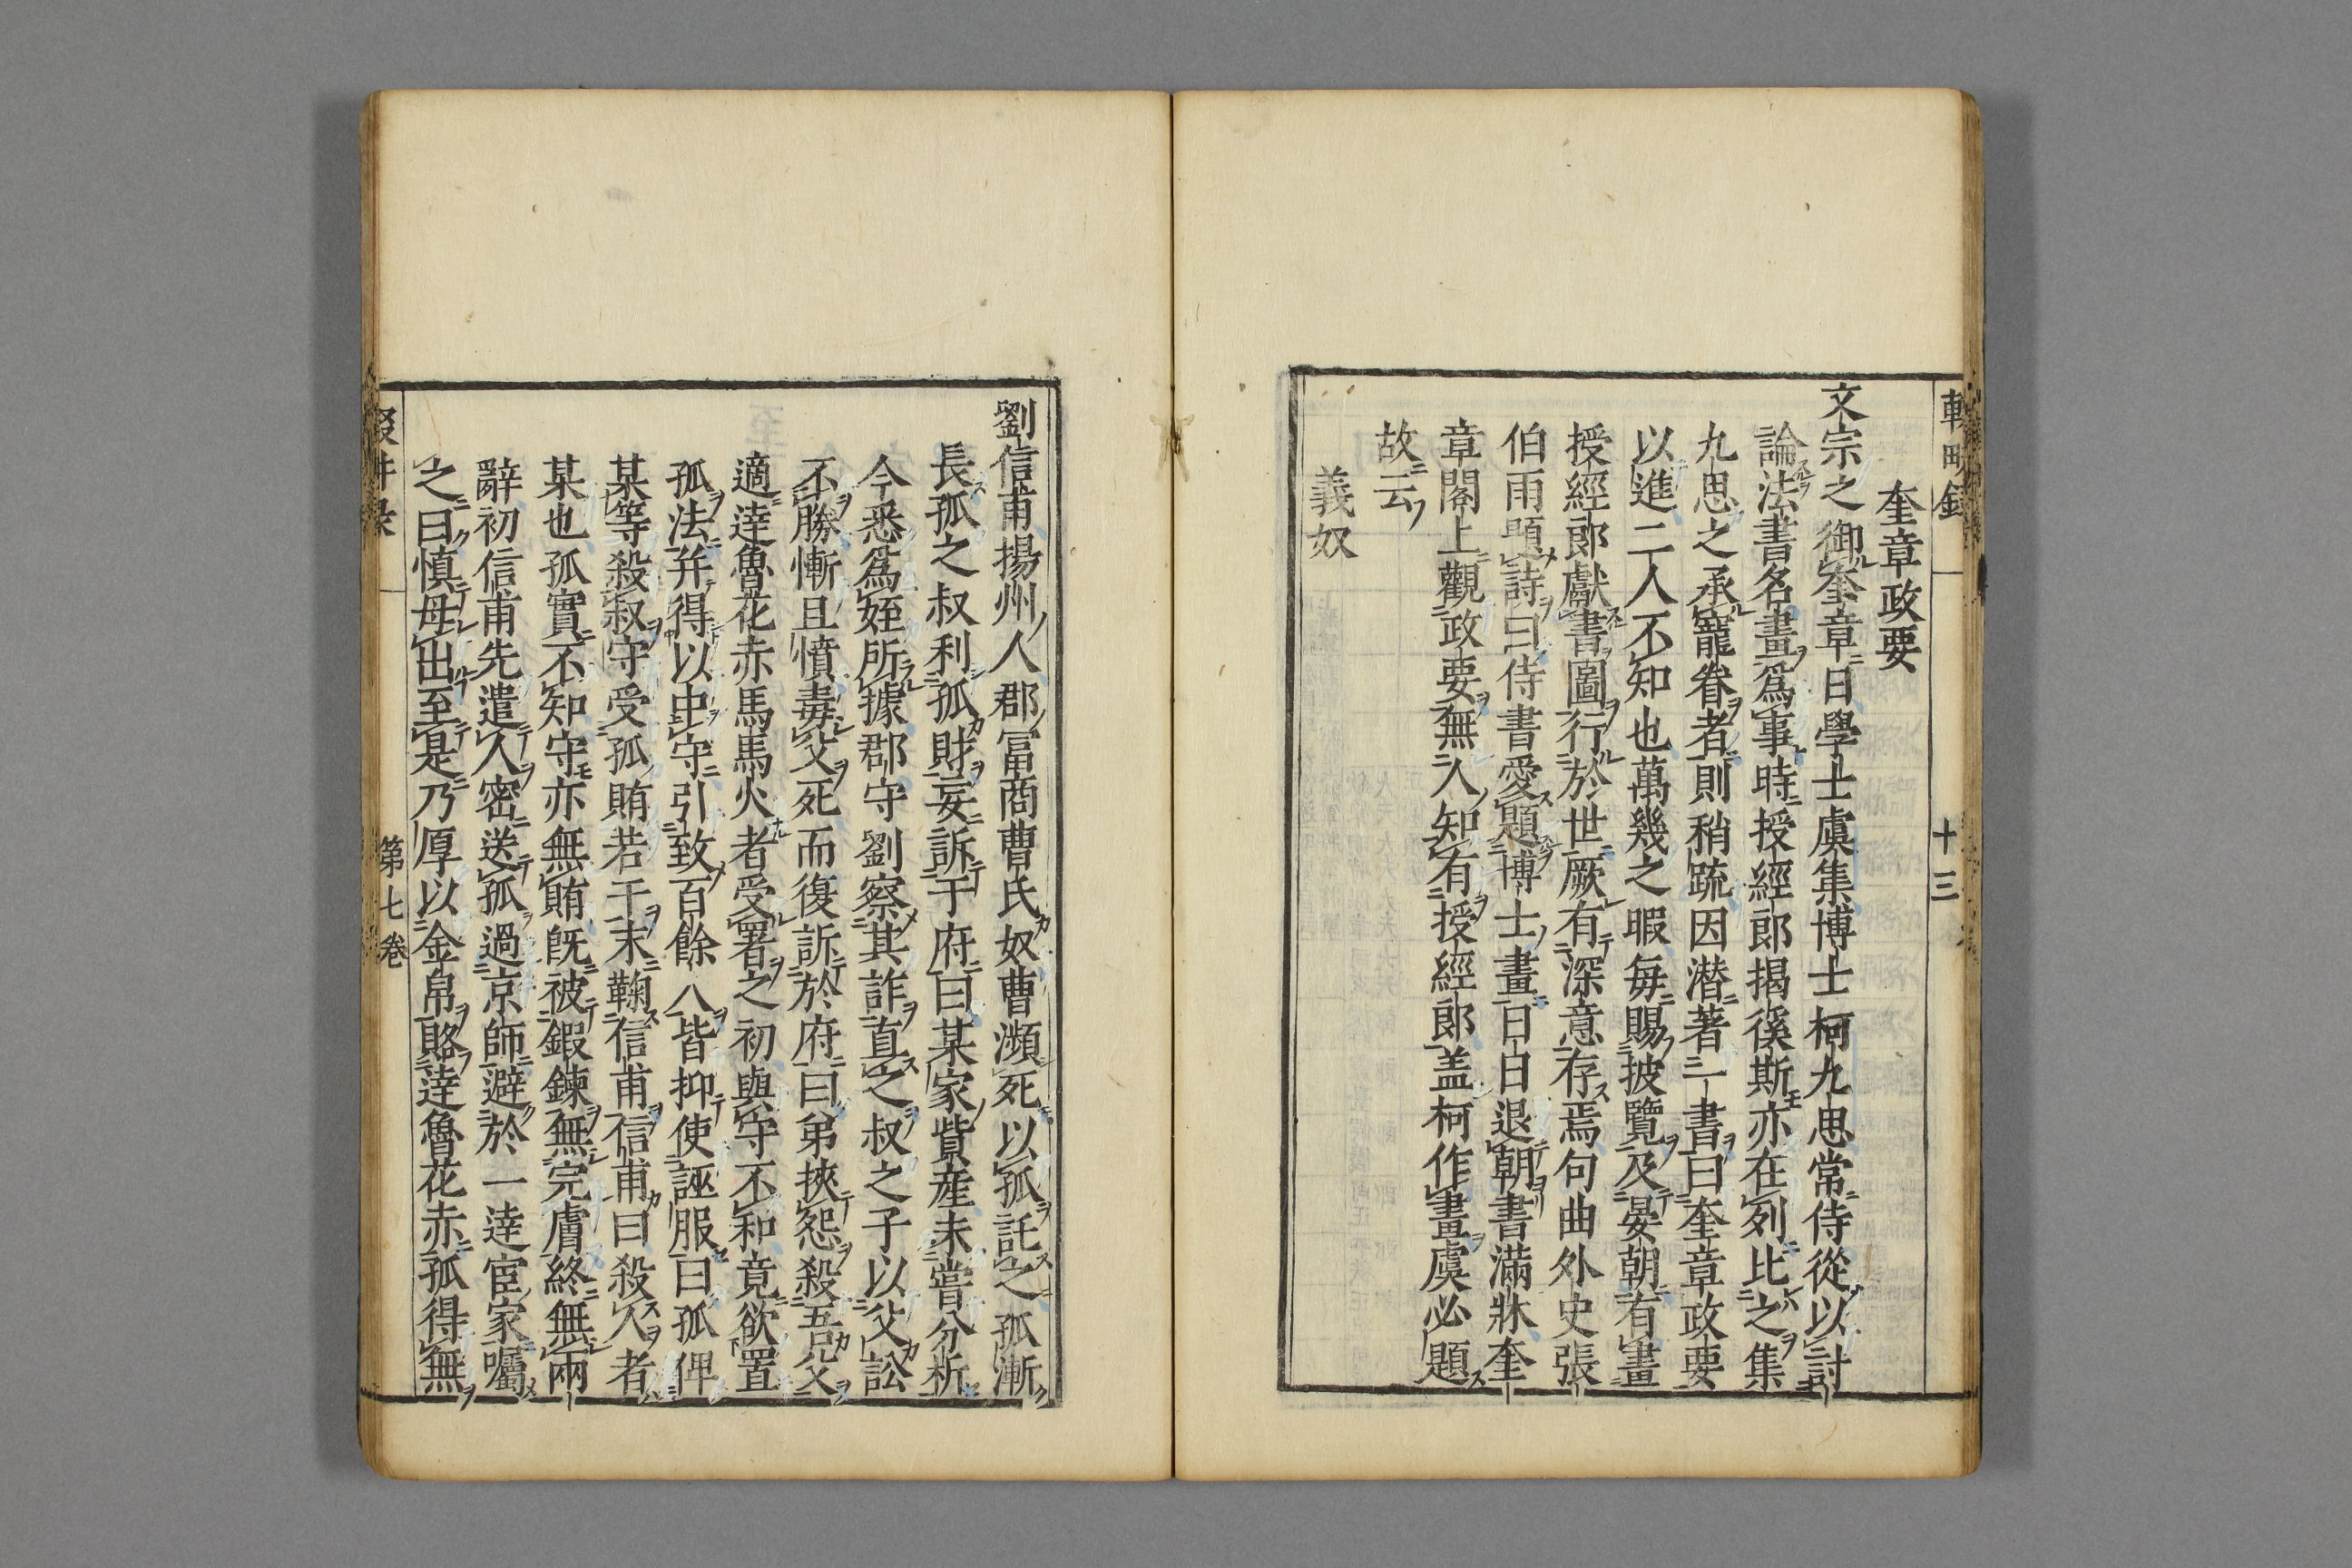 奎章政要
文宗之御奎章日學士虞集博士柯九思常侍從以討
論法書名畫爲事時授經郎揭徯斯亦在列比之集
九思之承寵眷者則稍疏因潜著一書曰奎章政要
以進二人不知也萬幾之暇每賜披覽及晏朝有畫
授經郎獻書圖行於世厥有深意存焉句曲外史張
伯雨題詩曰侍書愛題博士畫日日退朝書滿牀奎
章閣上觀政要無人知有授經郎盖柯作畫虞必題
故云
義奴
劉信甫揚州人郡冨商曹氏奴曹瀕死以孤託之孤漸
長孤之叔利孤財妄訴于府曰某家貲産未嘗分析
今悉爲姪所據郡守劉察其詐直之叔之子以父訟
不勝慚且憤毒父死而復訴於府曰弟挾怨殺吾父
適逹魯花赤馬馬火者受署之初與守不和竟欲置
孤法并得以中守引致百餘人皆抑使誣服曰孤俾
某等殺叔守受孤賄若干末鞠信甫信甫曰殺人者
某也孤實不知守亦無賄旣被鍜鍊無完膚終無兩
辭初信甫先遣人密送孤過京師避於一逹宦家囑
之曰慎毋出至是乃厚以金帛賂逹魯花赤孤得無
十三
第七卷